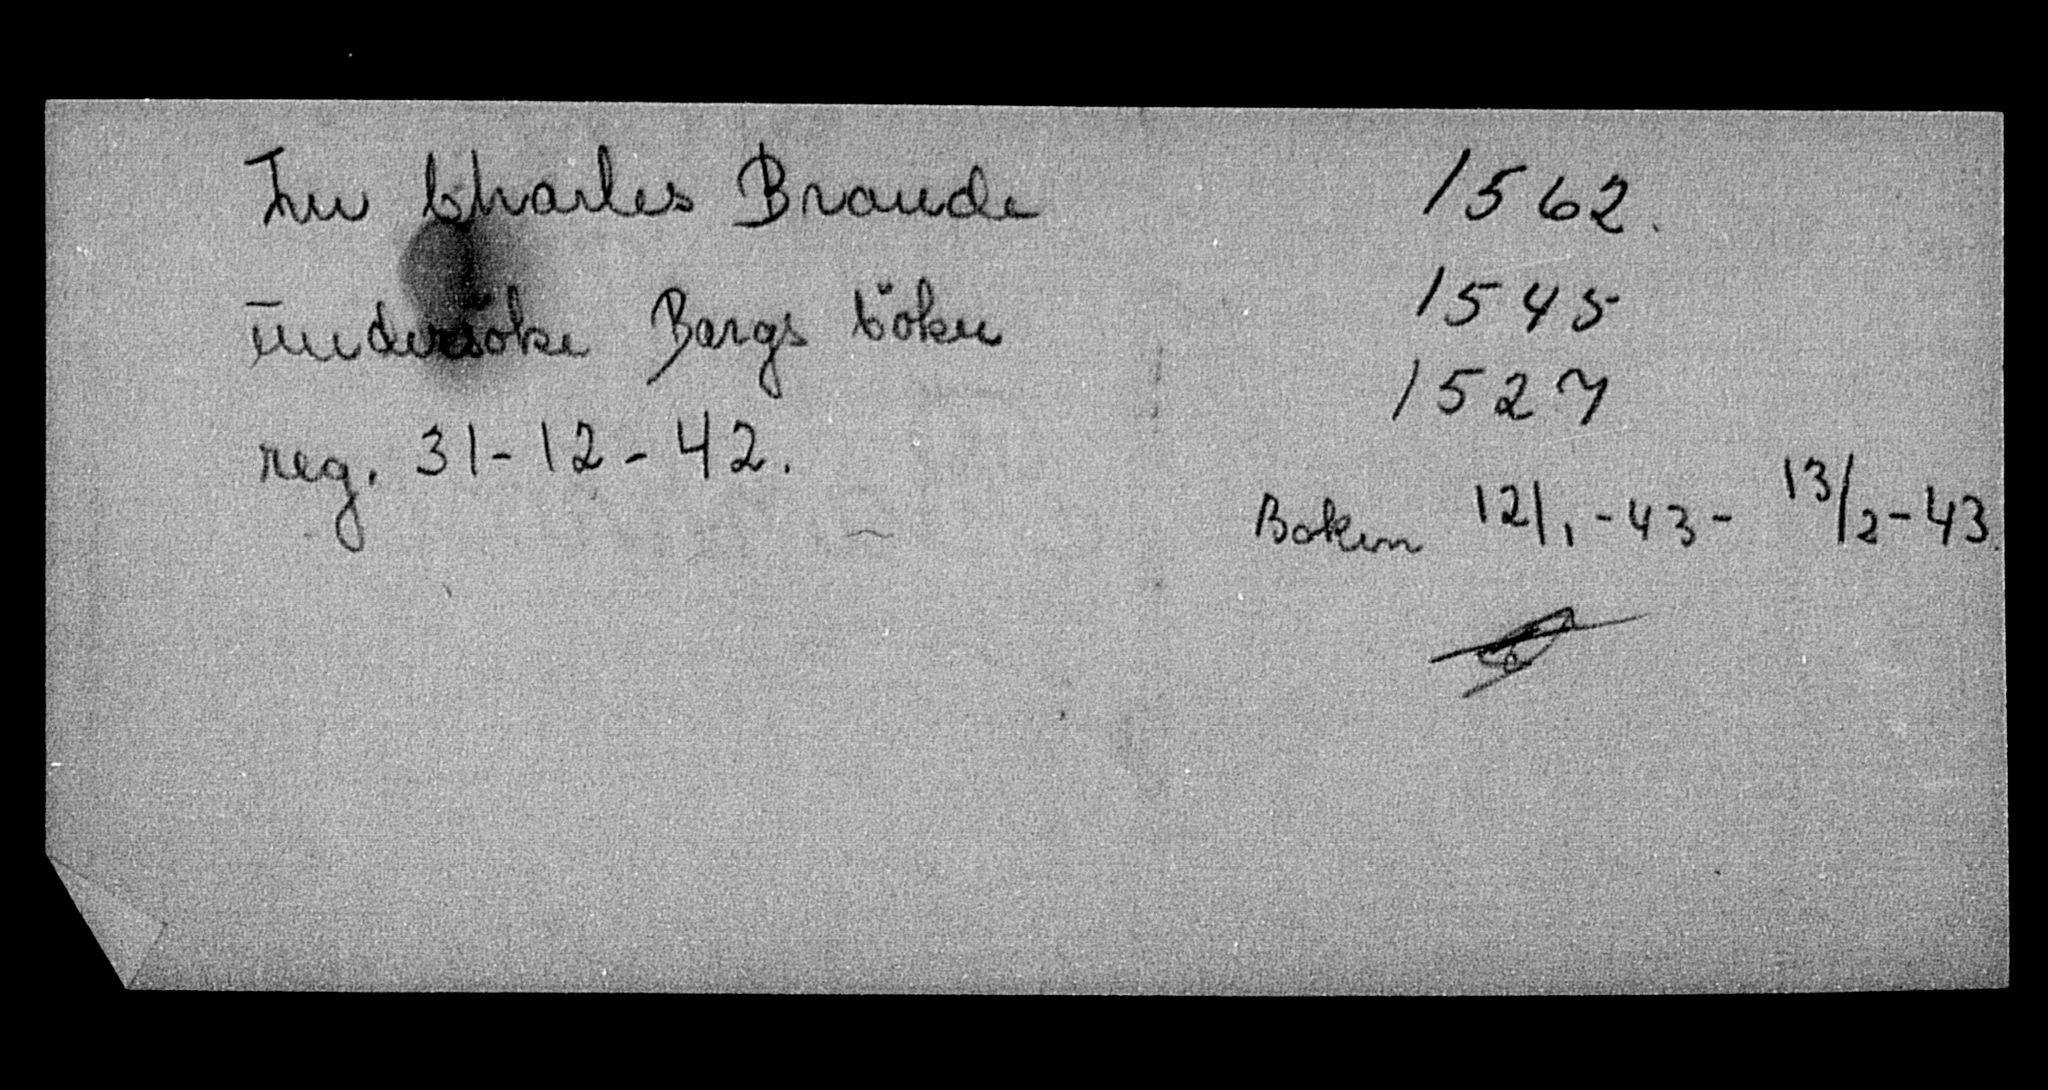 Charles Braude
undersöke Bargs böker
reg. 31-12-42.
1562.
1545
1527
Boken 12/1-43 - 13/2-43.